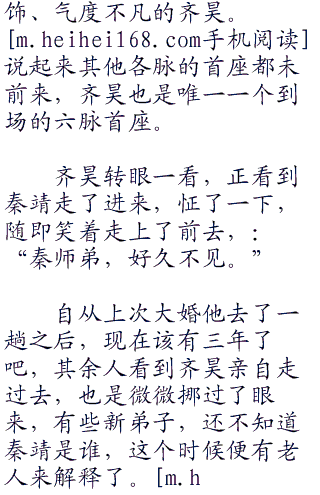 饰、气度不凡的齐昊。
[m.heihei168.com手机阅读]
说起来其他各脉的首座都未
前来，齐昊也是唯一一个到
场的六脉首座。
齐昊转眼一看，正看到
秦靖走了进来，怔了一下，
随即笑着走上了前去，：
“秦师弟，好久不见。”
自从上次大婚他去了一
趟之后，现在该有三年了
吧，其余人看到齐昊亲自走
过去，也是微微挪过了眼
来，有些新弟子，还不知道
秦靖是谁，这个时候便有老
人来解释了。[m.h